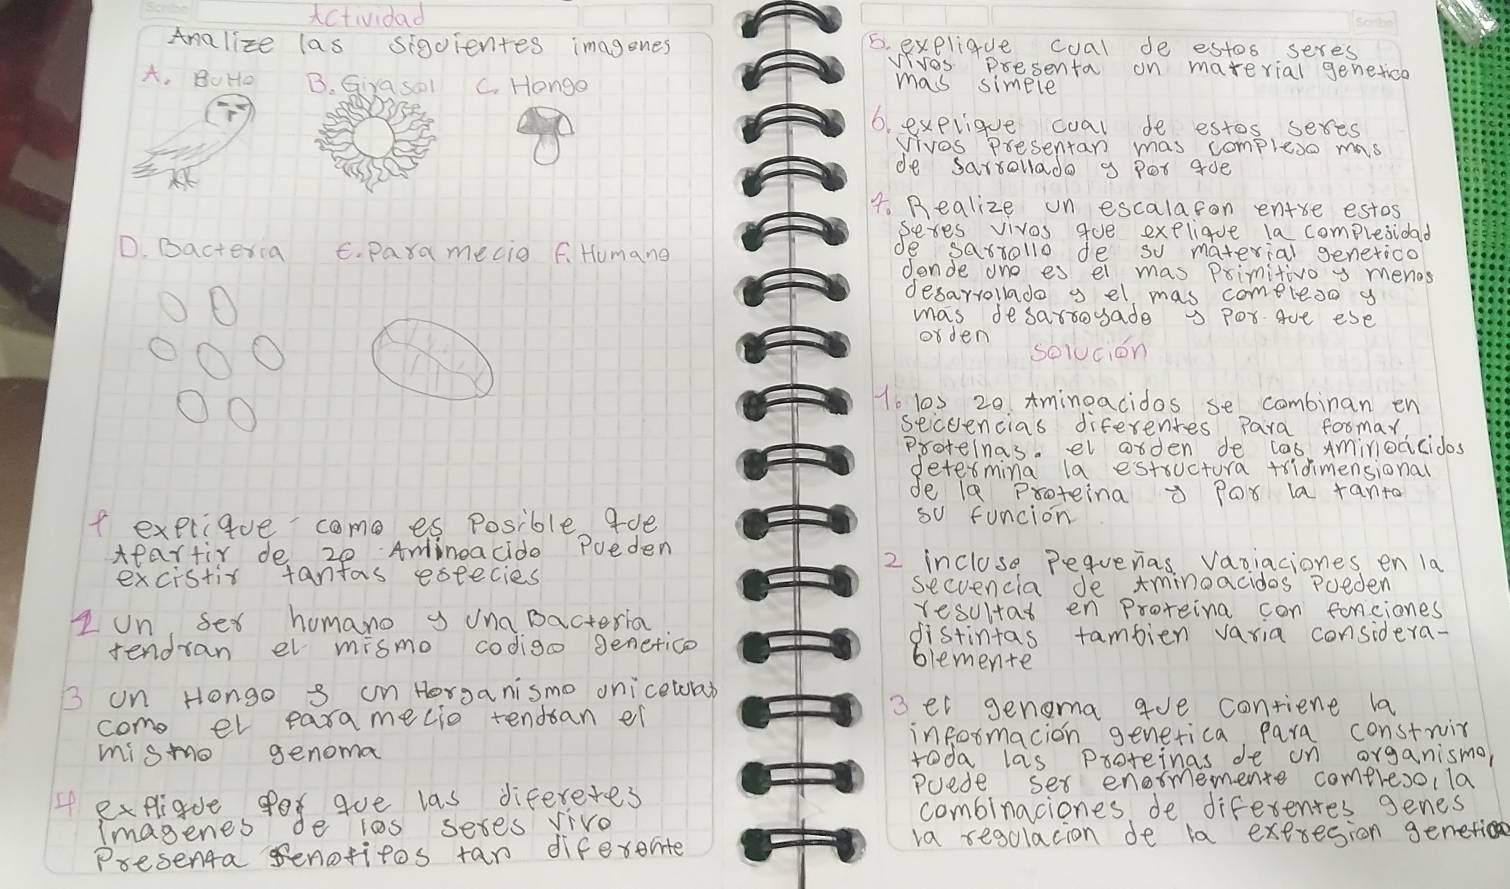 Actividad
Analize las siguientes imagenes
A. BuHo B. Girasol C. Hongo
D. Bacteria E. Para mecio F. Humano
1 explique como es Posible que
Apartir de 20 Aminoacido Pueden
excistir tantas especies
2 Un ser humano y Una Bacteria
tendran el mismo codigo genetico
3 un Hongo y un Horganismo unicelular
como el para mecio tendran el
mismo genoma
4 explique por que las diferetes
imagenes de los seres vivo
Presenta fenotipos tan diferente
5. explique cual de estos seres
vivos Presenta un material genetico
mas simple
6. explique cual de estos seres
vivos Presentan mas complejo mas
de sarrollado y Por que
7. Realize un escalafon entre estos
seres vivos que explique la complejidad
de sarrollo de su material genetico
donde uno es el mas Primitivo y menos
desarrollado y el mas complejo y
mas desarroyado y Por que ese
orden
solución
1. los 20 Aminoacidos se combinan en
secuencias diferentes Para formar
Proteínas. el orden de los Aminoácidos
determina la estructura tridimensional
de la Proteina y Por la tanto
su función
2 incluso Pequeñas Variaciones en la
secuencia de Aminoacidos Pueden
resultar en Proteina con funciones
distintas tambien varia considera-
blemente
3 el genoma que contiene la
información genetica Para construir
toda las Proteinas de un organismo,
Puede ser enormemente complejo, la
combinaciones de diferentes genes
la regulacion de la expresion genetica